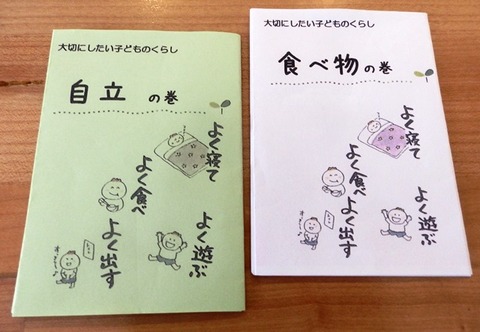 大切にしたい子どものくらし
自立の巻
よく寝て
よく食べ
よく遊ぶ
よく出す
大切にしたい子どものくらし
食べ物の巻
よく寝て
よく食べ
よく遊ぶ
よく出す